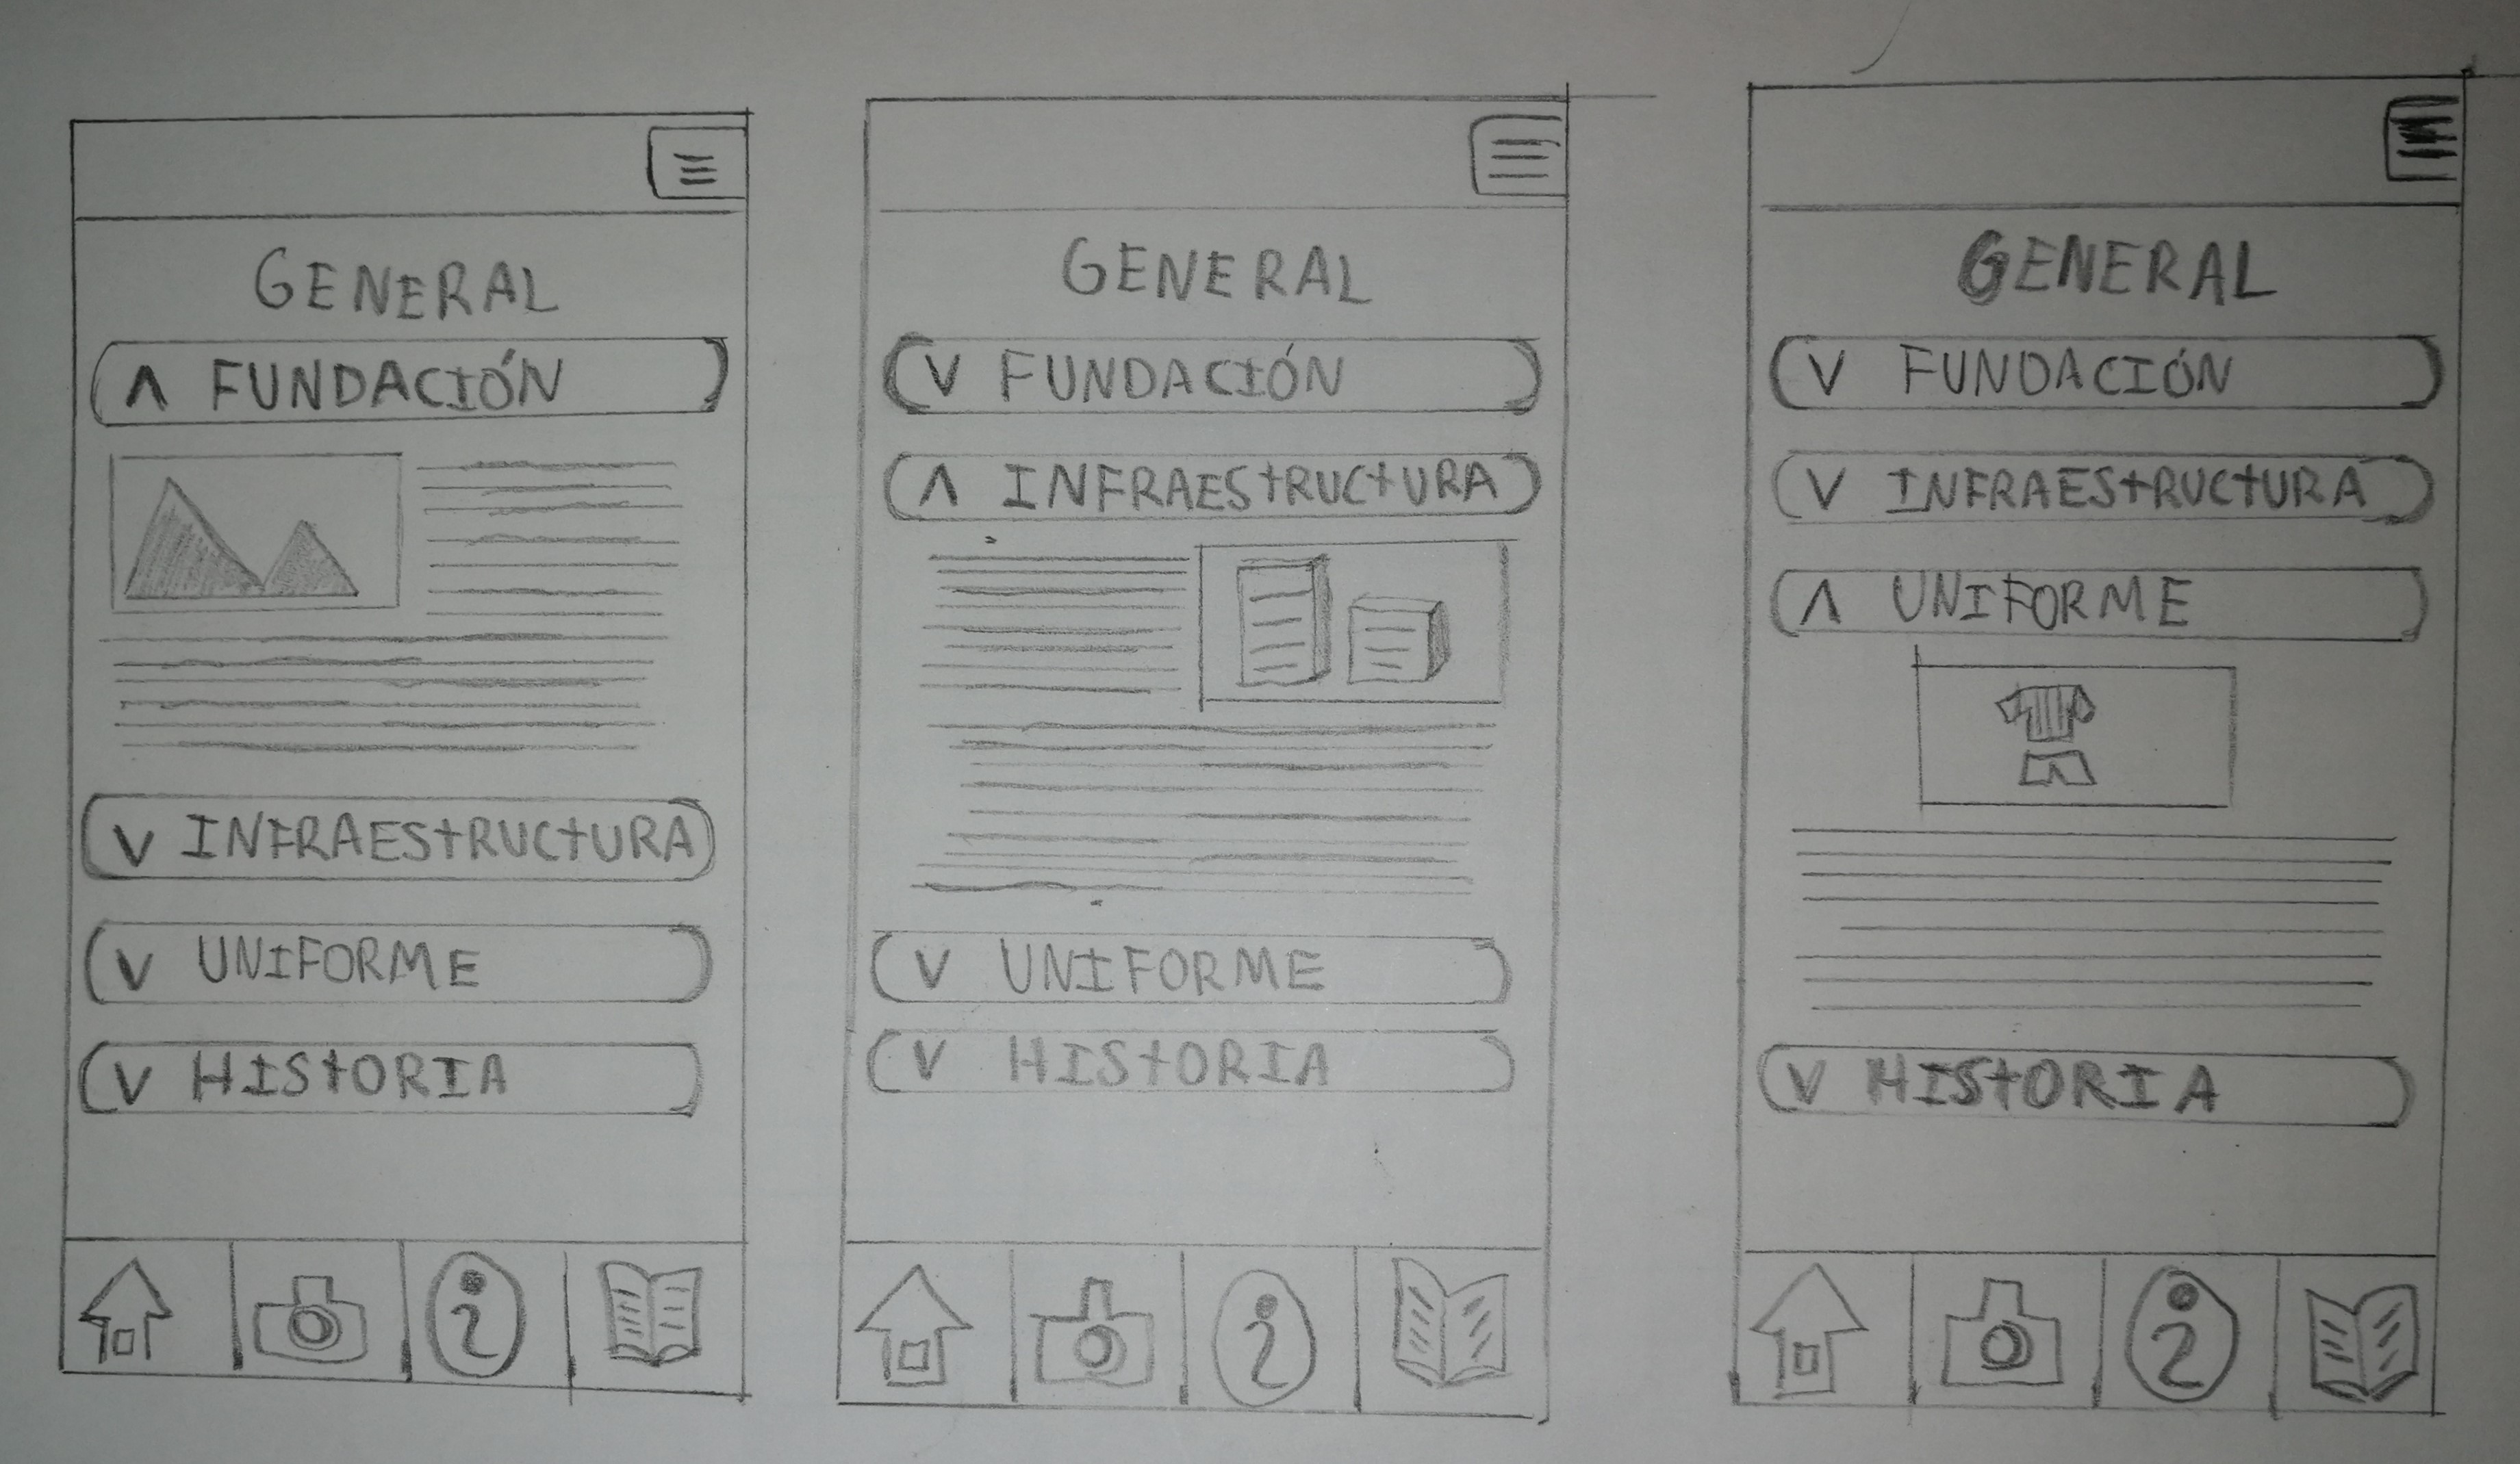 GENERAL
Λ FUNDACIÓN
V INFRAEStRUCtURA
V UNIFORME
V HIStORIA
i
GENERAL
V FUNDACIÓN
Λ INFRAEStRUCtURA
V UNIFORME
V HIStORIA
i
GENERAL
V FUNDACIÓN
V INFRAEStRUCtURA
Λ UNIFORME
V HIStORIA
i